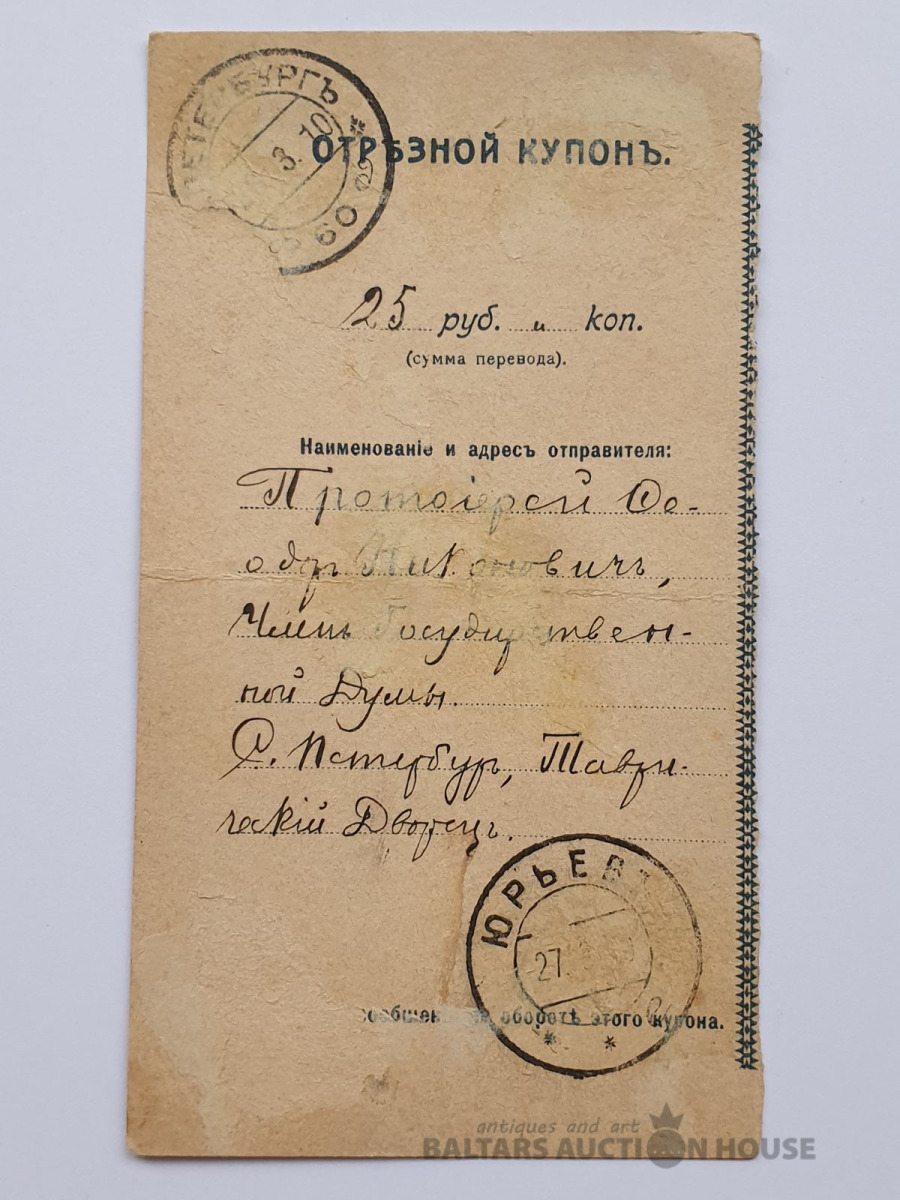 ПЕТЕРБУРГЪ
3. 10
60
ОТРѢЗНОЙ КУПОНЪ.
25 руб. и коп.
(сумма перевода).
Наименованіе и адресъ отправителя:
Протоіерей Ѳе-
одоръ Никоновичъ,
Членъ Государствен-
ной Думы.
С. Петербургъ, Таври-
ческій Дворецъ.
ЮРЬЕВЪ
27.
сообщенія на оборотѣ этого купона.
antiques and art
BALTARS AUCTION HOUSE